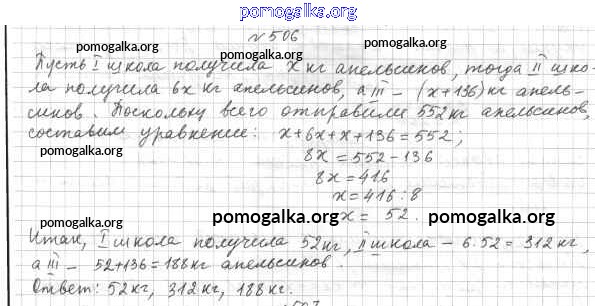 pomogalka.org
№ 506
pomogalka.org pomogalka.org
Пусть I школа получила x кг апельсинов, тогда II шко-
ла получила 6x кг апельсинов, а III – (x+136) кг апель-
pomogalka.org
синов. Поскольку всего отправили 552 кг апельсинов,
составим уравнение: x+6x+x+136=552;
pomogalka.org pomogalka.org
8x=552-136
8x=416
x=416:8
pomogalka.org pomogalka.org pomogalka.org
x= 52.
Итак, I школа получила 52 кг, II школа – 6·52=312 кг,
а III – 52+136=188 кг апельсинов.
Ответ: 52 кг, 312 кг, 188 кг.
pomogalka.org pomogalka.org